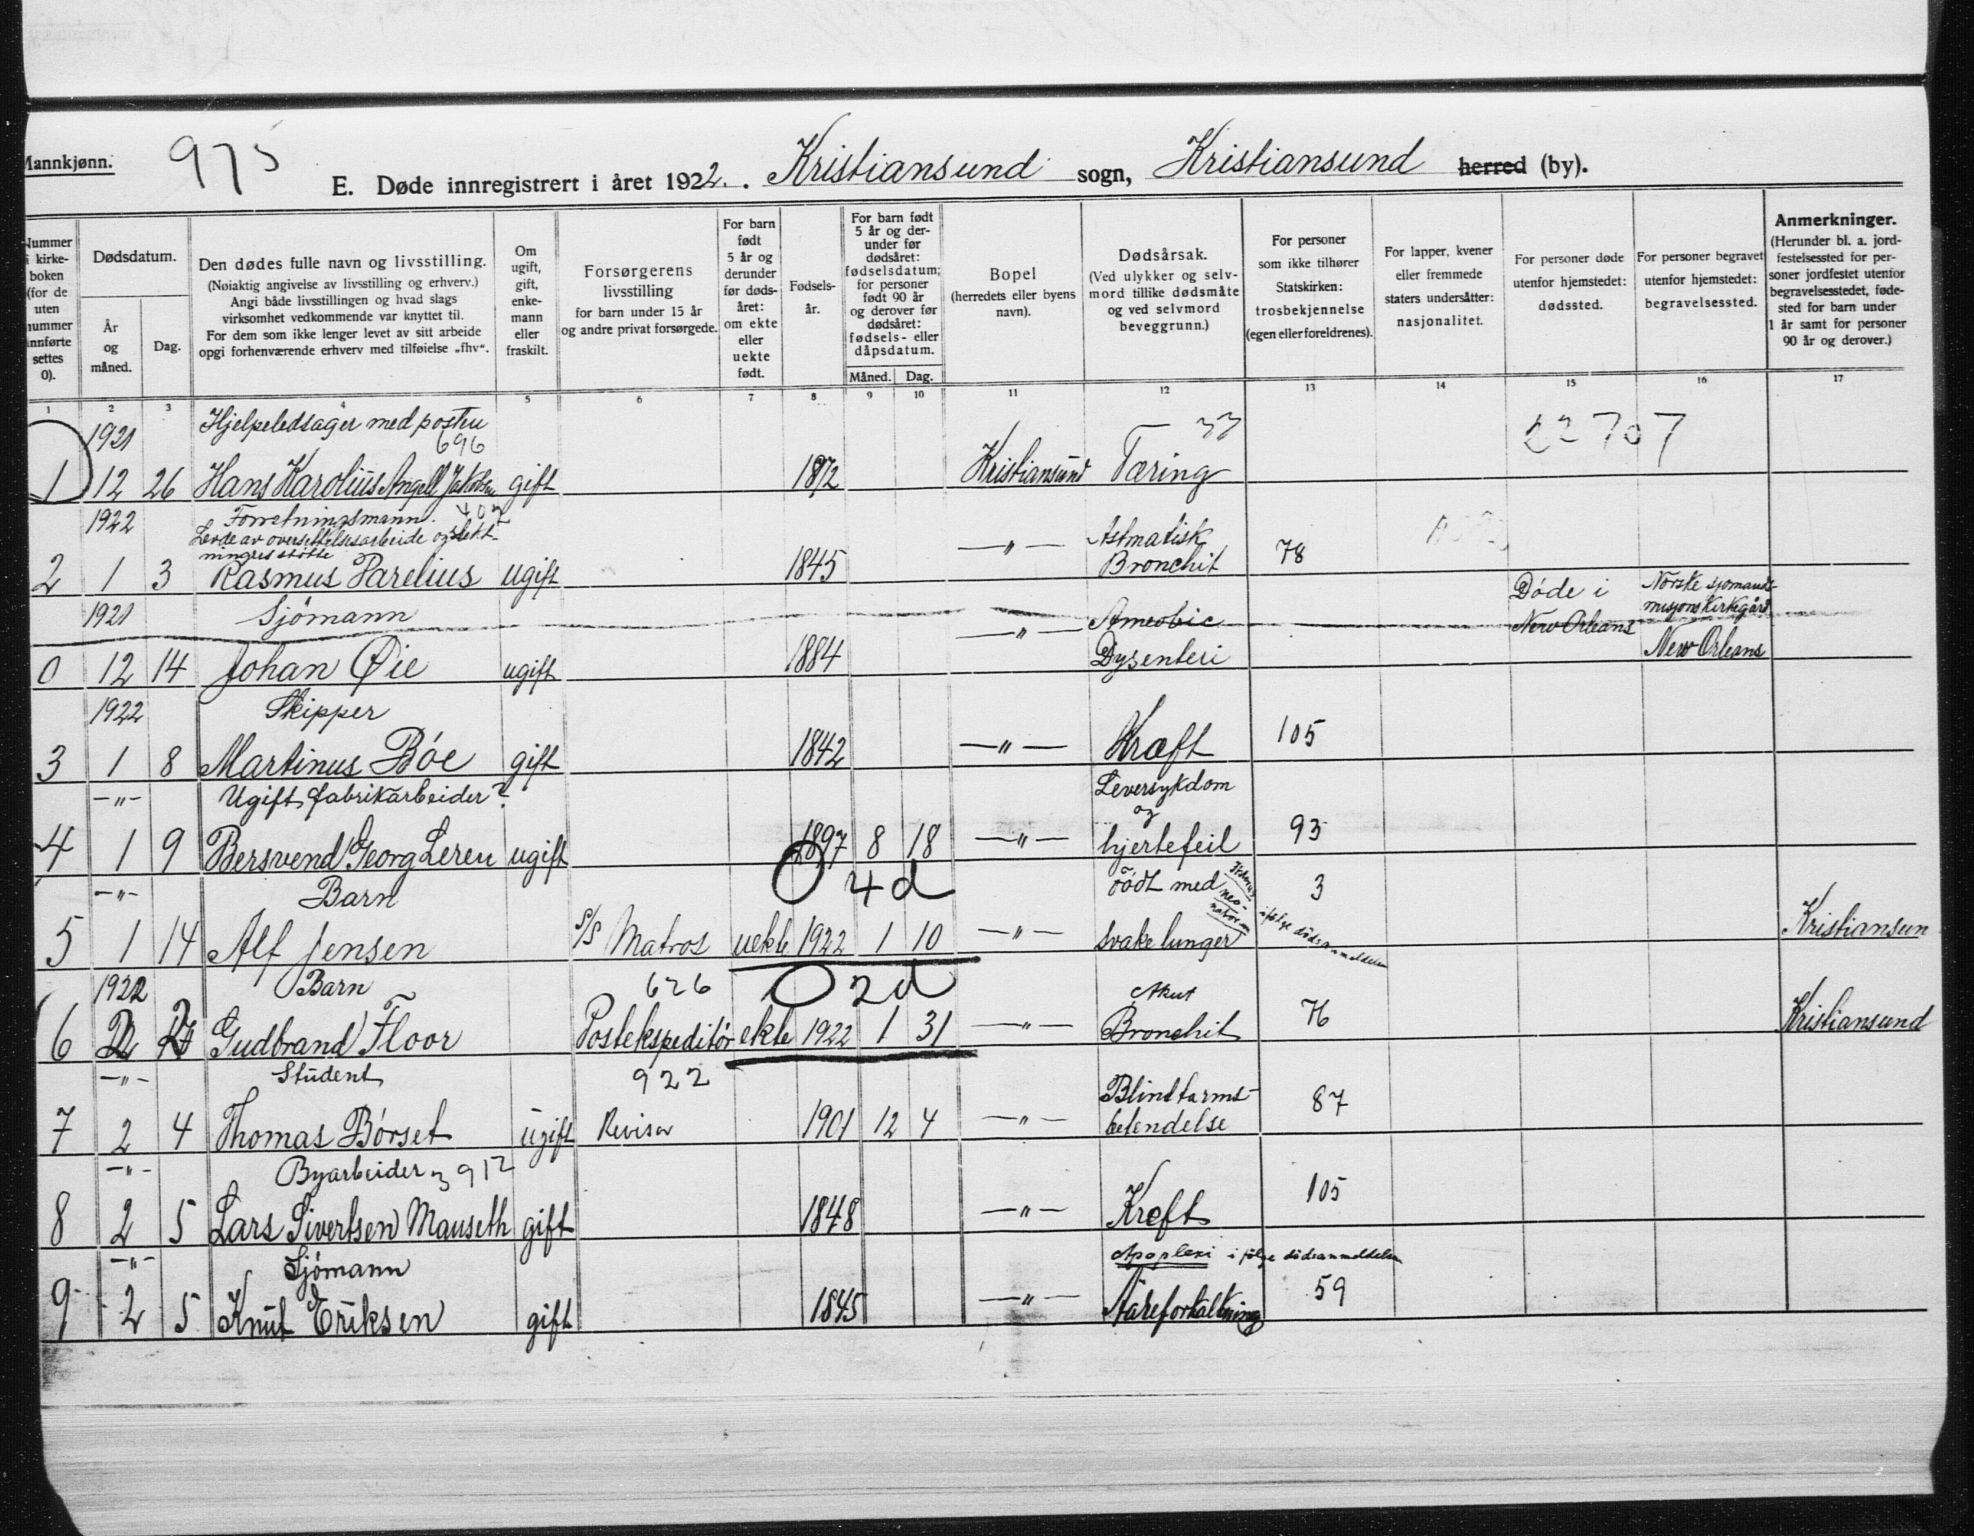 Mannkjønn.
975
E. Døde innregistrert i året 1922. Kristiansund sogn, Kristiansund herred (by).
Nummer i kirkeboken (for de uten nummer innførte settes 0).
Dødsdatum.
År og måned.
Dag.
Den dødes fulle navn og livsstilling.
(Nøiaktig angivelse av livsstilling og erhverv.)
Angi både livsstillingen og hvad slags
virksomhet vedkommende var knyttet til.
For dem som ikke lenger levet av sitt arbeide
opgi forhenværende erhverv med tilføielse „fhv“.
Om ugift, gift, enkemann eller fraskilt.
Forsørgerens livsstilling
for barn under 15 år og andre privat forsørgede.
For barn født 5 år og derunder før dødsåret: om ekte eller uekte født.
Fødselsår.
For barn født 5 år og derunder før dødsåret: fødselsdatum; for personer født 90 år og derover før dødsåret: fødsels- eller dåpsdatum.
Måned. Dag.
Bopel
(herredets eller byens navn).
Dødsårsak.
(Ved ulykker og selvmord tillike dødsmåte og ved selvmord beveggrunn.)
For personer som ikke tilhører Statskirken: trosbekjennelse (egen eller foreldrenes).
For lapper, kvener eller fremmede staters undersåtter: nasjonalitet.
For personer døde utenfor hjemstedet: dødssted.
For personer begravet utenfor hjemstedet: begravelsessted.
Anmerkninger.
(Herunder bl. a. jordfestelsessted for personer jordfestet utenfor begravelsesstedet, fødested for barn under 1 år samt for personer 90 år og derover.)
1 2 3 4 5 6 7 8 9 10 11 12 13 14 15 16 17
1921 Hjelpeledsager med posten 696 33 22707
1 12 26 Hans Karolius Angell Jakobsen gift 1872 Kristiansund Tæring
1922 Forretningsmann.
Levde av oversettelsesarbeide og slektningers støtte
2 1 3 Rasmus Parelius ugift 1845 —"— Astmatisk Bronchit 78
1921 Sjømann
0 12 14 Johan Øie ugift 1884 —"— Ameobic Dysenteri Døde i New Orleans Norske sjomandsmisjons Kirkegård New Orleans
1922 Skipper
3 1 8 Martinus Bøe gift 1842 —"— Kræft 105
—"— Ugift, fabrikarbeider?
4 1 9 Bersvend Georg Leren ugift 1897 8 18 —"— Leversykdom og hjertefeil 93
—"— Barn 0 4d
5 1 14 Alf Jensen S/S Matros uekte 1922 1 10 —"— født med svake lunger neonatorum ifølge dödsanmeldelse 3 Kristiansun
1922 Barn 626 0 2d
6 2 Gudbrand Floor Postekspeditør ekte 1922 1 31 —"— Akut Bronchit 76 Kristiansund
—"— Student 922
7 2 4 Thomas Børset ugift Revisor 1901 12 4 —"— Blindtarmsbetendelse 87
—"— Byarbeider 3912
8 2 5 Lars Sivertsen Mauseth gift 1848 —"— Kreft 105
—"— Sjømann Apoplexi i følge dödsanmeldelse
9 2 5 Knut Eriksen gift 1845 —"— Åreforkalkning 59